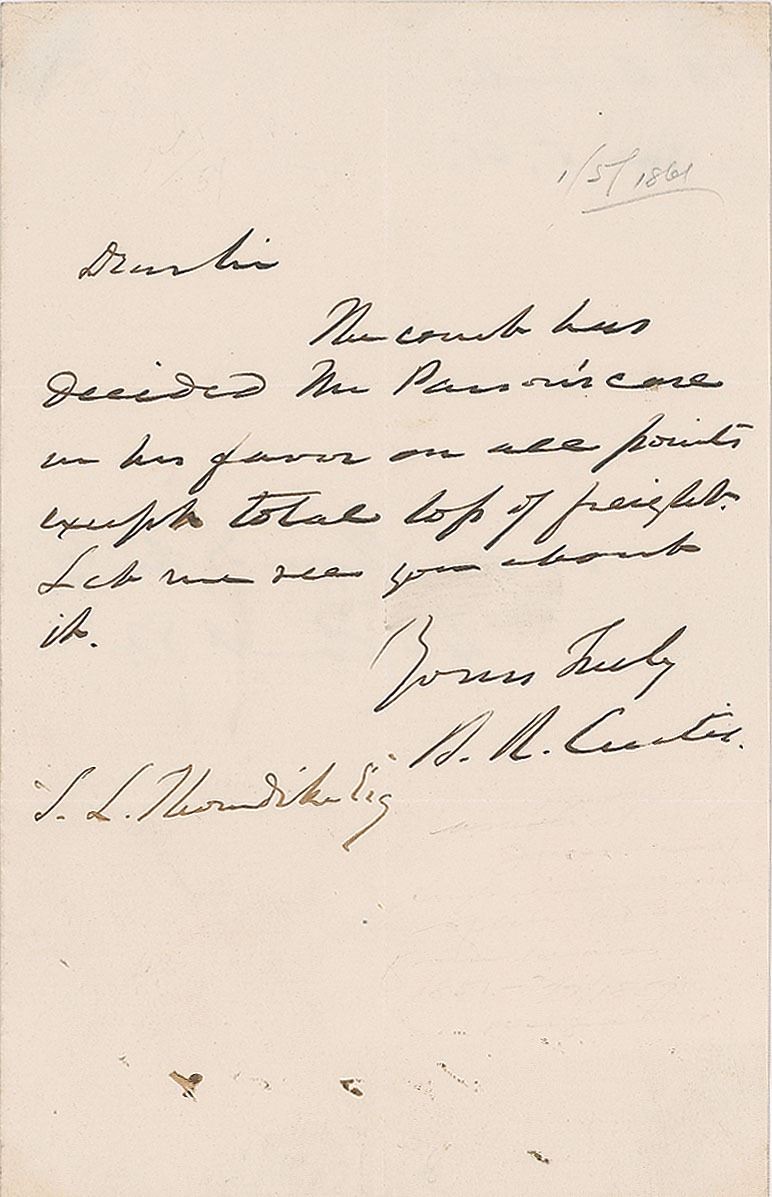 1/5/1861
Dear Sir
The court has
decided Mr Parsons's case
in his favor on all points
except total loss of freight.
Let me see you about
it.
Yours truly
B. R. Curtis.
S. L. Thorndike Esq